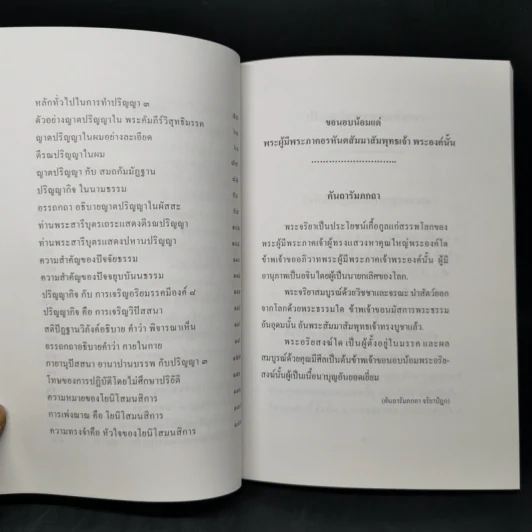 หลักทั่วไปในการทำปริญญา ๓
ตัวอย่างญาตปริญญาใน พระคัมภีร์วิสุทธิมรรค
ญาตปริญญาในผมอย่างละเอียด
ตีรณปริญญาในผม
ญาตปริญญา กับ สมถกัมมัฏฐาน
ปริญญากิจ ในนามธรรม
อรรถกถา อธิบายญาตปริญญาในผัสสะ
ท่านพระสารีบุตรเถระแสดงตีรณปริญญา
ท่านพระสารีบุตรแสดงปหานปริญญา
ความสำคัญของปัจจัยธรรม
ความสำคัญของปัจจยุบบันนธรรม
ปริญญากิจ กับ การเจริญอริยมรรคมีองค์ ๘
ปริญญากิจ คือ การเจริญวิปัสสนา
สติปัฏฐานวิภังค์อธิบาย คำว่า พิจารณาเห็น
อรรถกถาอธิบายคำว่า กายในกาย
กายานุปัสสนา อานาปานบรรพ กับปริญญา ๓
โทษของการปฏิบัติโดยไม่ศึกษาปริยัติ
ความหมายของโยนิโสมนสิการ
การเพ่งฌาณ คือ โยนิโสมนสิการ
ความทรงจำคือ หัวใจของโยนิโสมนสิการ
ขอนอบน้อมแด่
พระผู้มีพระภาคอรหันตสัมมาสัมพุทธเจ้า พระองค์นั้น
คันถารัมภกถา
พระจริยาเป็นประโยชน์เกื้อกูลแก่สรรพโลกของ
พระผู้มีพระภาคเจ้าผู้ทรงแสวงหาคุณใหญ่พระองค์ใด
ข้าพเจ้าขออภิวาทพระผู้มีพระภาคเจ้าพระองค์นั้น ผู้มี
อานุภาพเป็นอจินไตยผู้เป็นนายกเลิศของโลก.
พระจริยาสมบูรณ์ด้วยวิชชาและจรณะ นำสัตว์ออก
จากโลกด้วยพระธรรมใด ข้าพเจ้าขอนมัสการพระธรรม
อันอุดมนั้น อันพระสัมมาสัมพุทธเจ้าทรงบูชาแล้ว.
พระอริยสงฆ์ใด เป็นผู้ตั้งอยู่ในมรรค และผล
สมบูรณ์ด้วยคุณมีศีลเป็นต้นข้าพเจ้าขอนอบน้อมพระอริย-
สงฆ์นั้นผู้เป็นเนื้อนาบุญอันยอดเยี่ยม
(คันถารัมภกถา จริยาปิฎก)